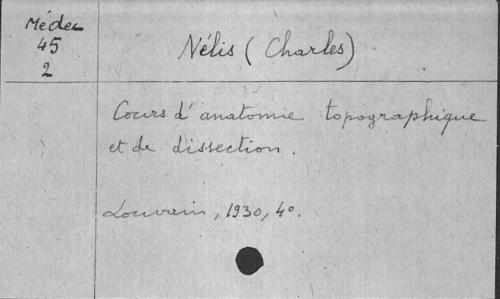 Médec
45
2
Nélis (Charles)
Cours d'anatomie topographique
et de dissection.
Louvain, 1930, 4º.